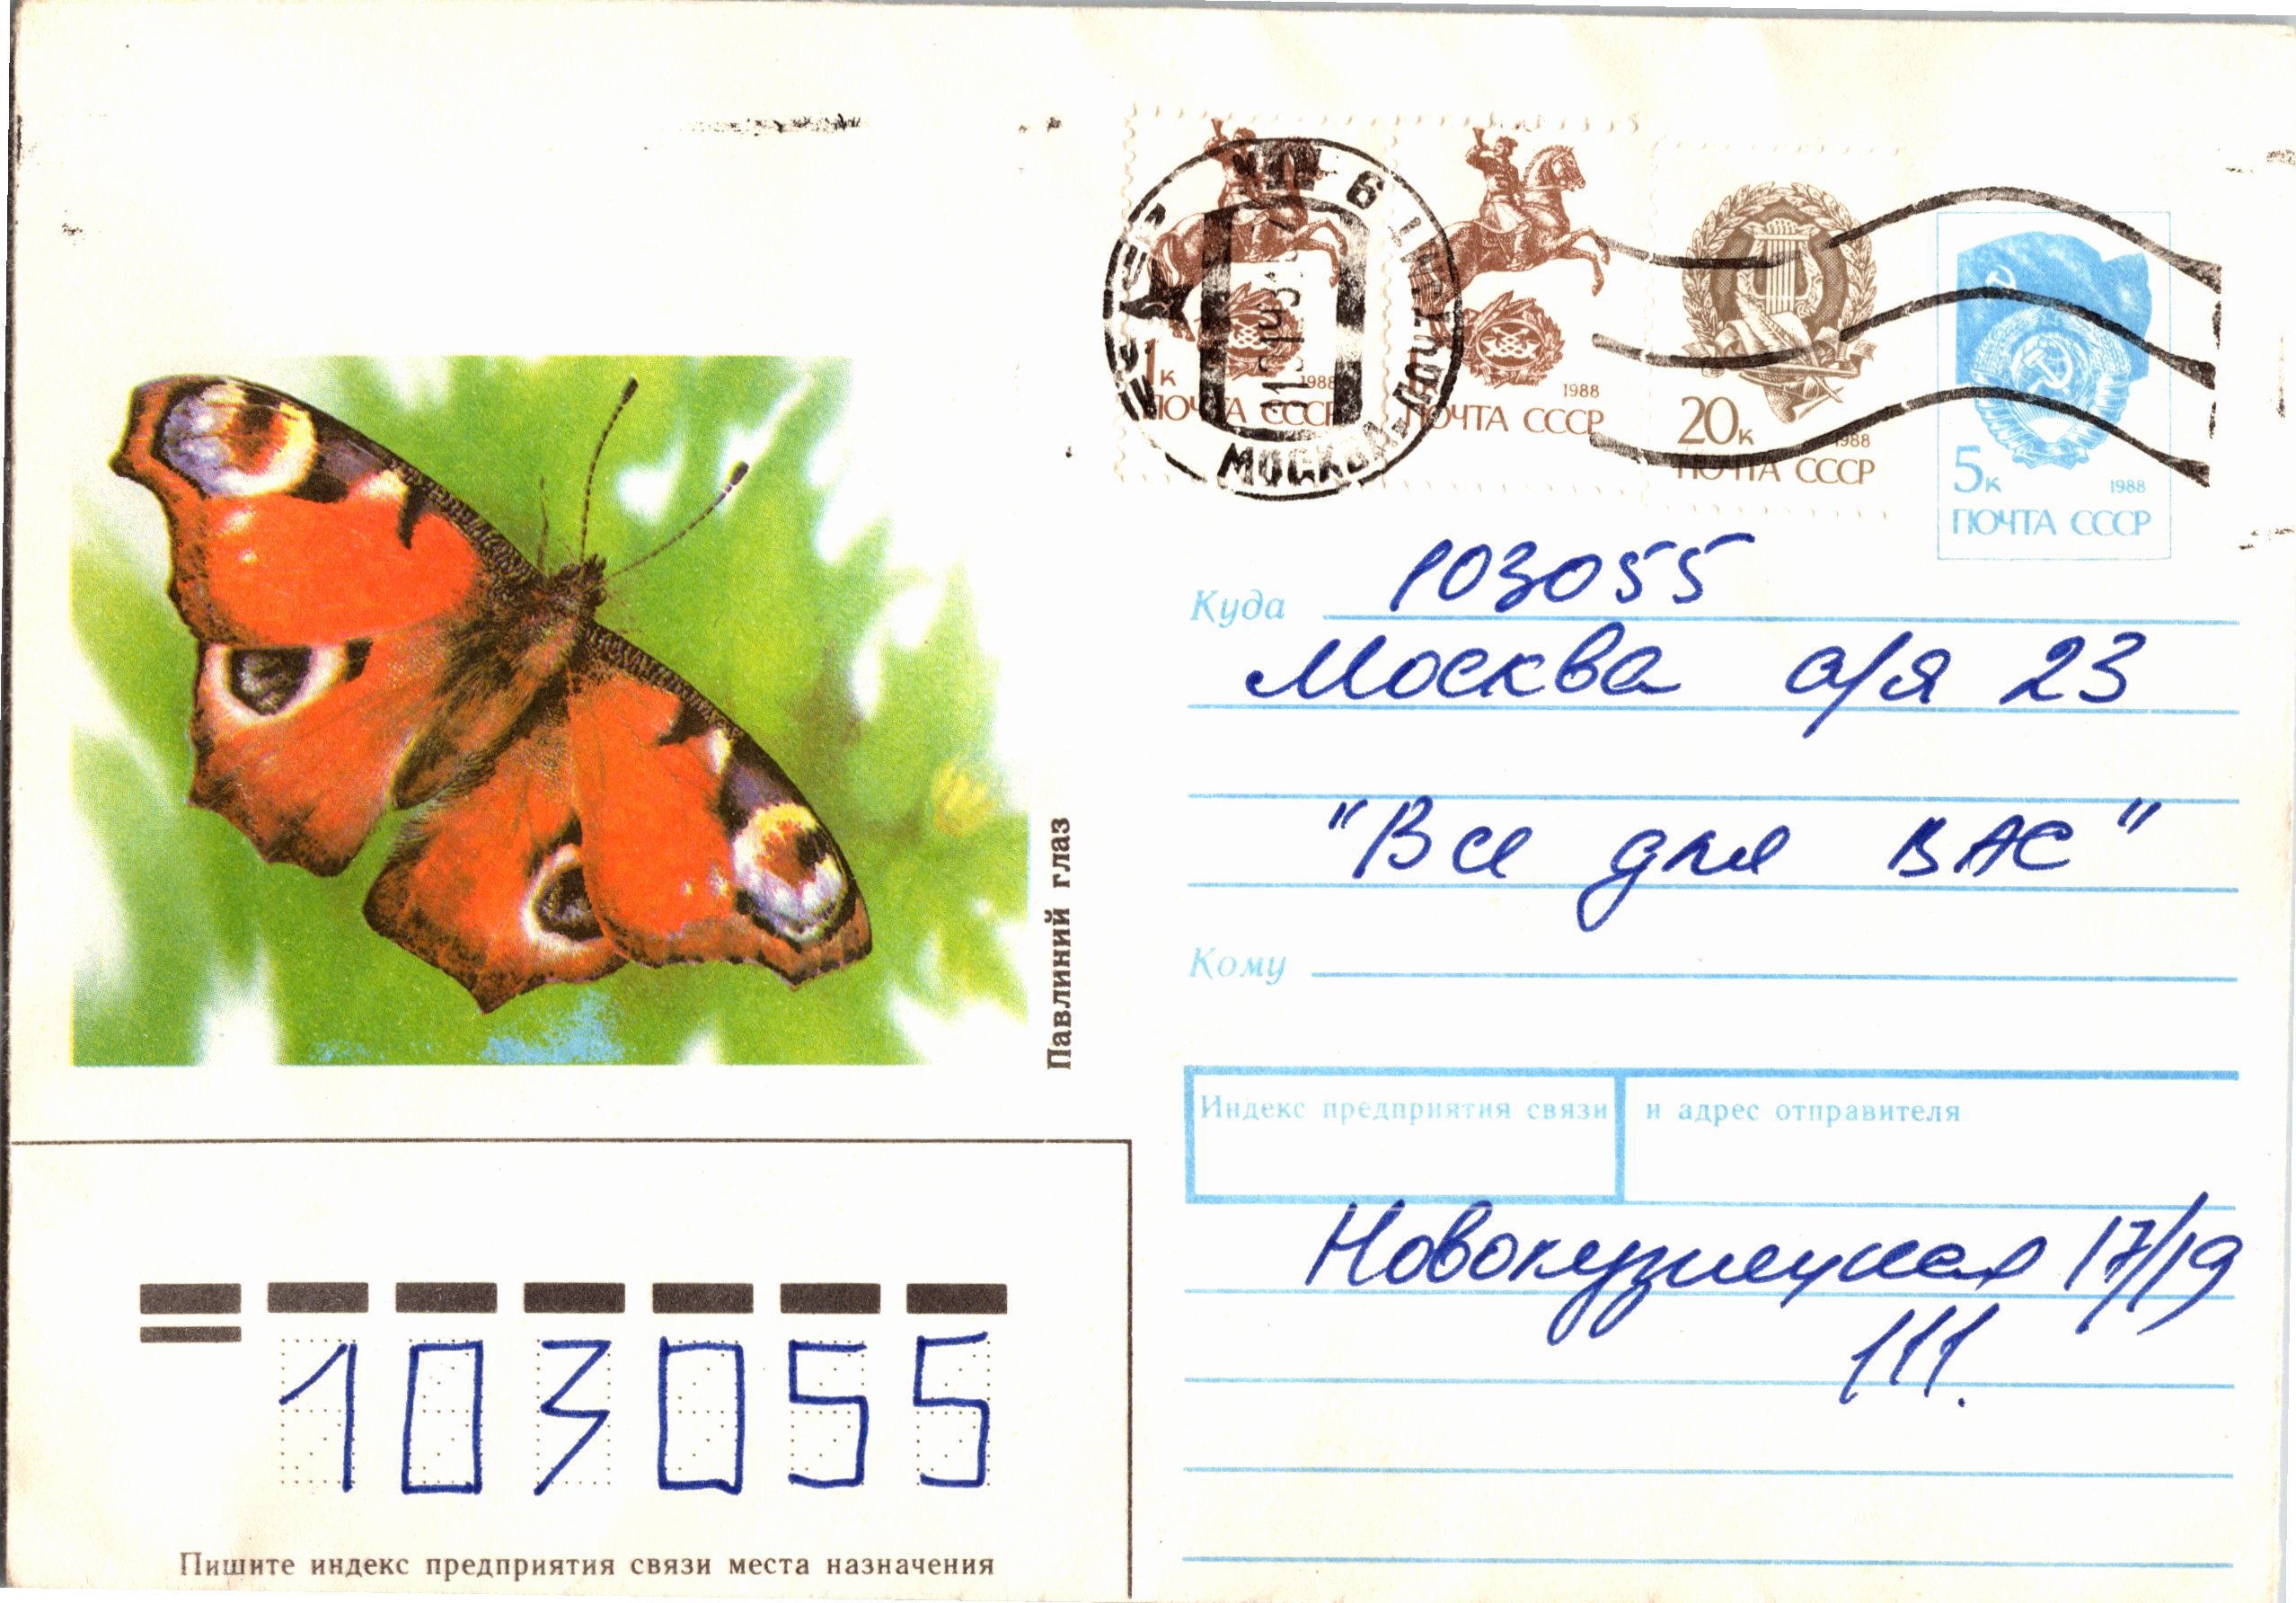 1к
1988
ПОЧТА СССР
1988
ПОЧТА СССР
20к
1988
ПОЧТА СССР
5к
1988
ПОЧТА СССР
МОСКВА
Куда 103055
Москва а/я 23
"Все для ВАС"
Кому
Павлиний глаз
Индекс предприятия связи и адрес отправителя
Новокузнецкая 17/19
111.
103055
Пишите индекс предприятия связи места назначения